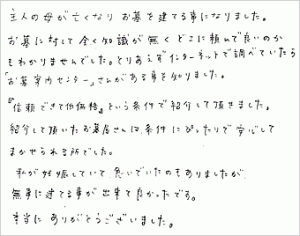 主人の母が亡くなり お墓を建てる事になりました。
お墓に対して全く知識が無くどこに頼んで良いのか
もわかりませんでした。とりあえずインターネットで調べていたら
「お墓案内センター」さんがある事を知りました。
『信頼できて低価格』という条件で紹介して頂きました。
紹介して頂いたお墓屋さんは、条件にぴったりで安心して
まかせられる所でした。
私が妊娠していて急いでいたのもありましたが
無事に建てる事が出来て良かったです。
本当にありがとうございました。